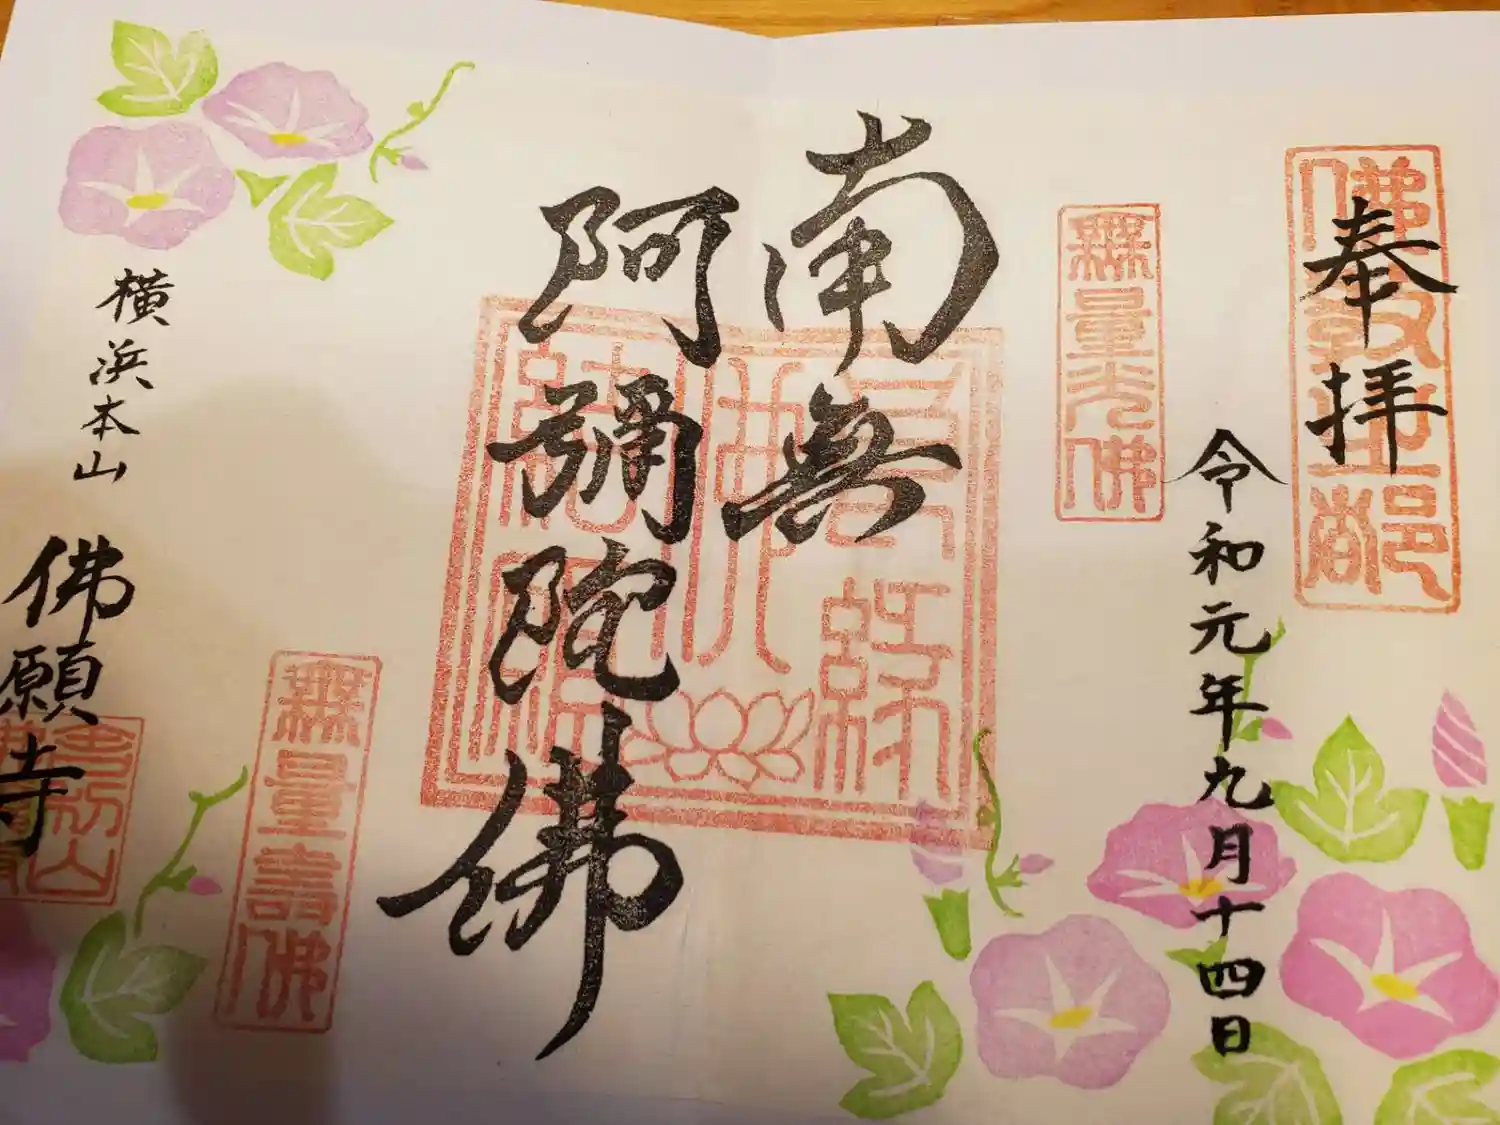 奉拝
令和元年九月十四日
無量光佛
南無
阿彌陀佛
無量壽佛
横浜本山
佛願寺